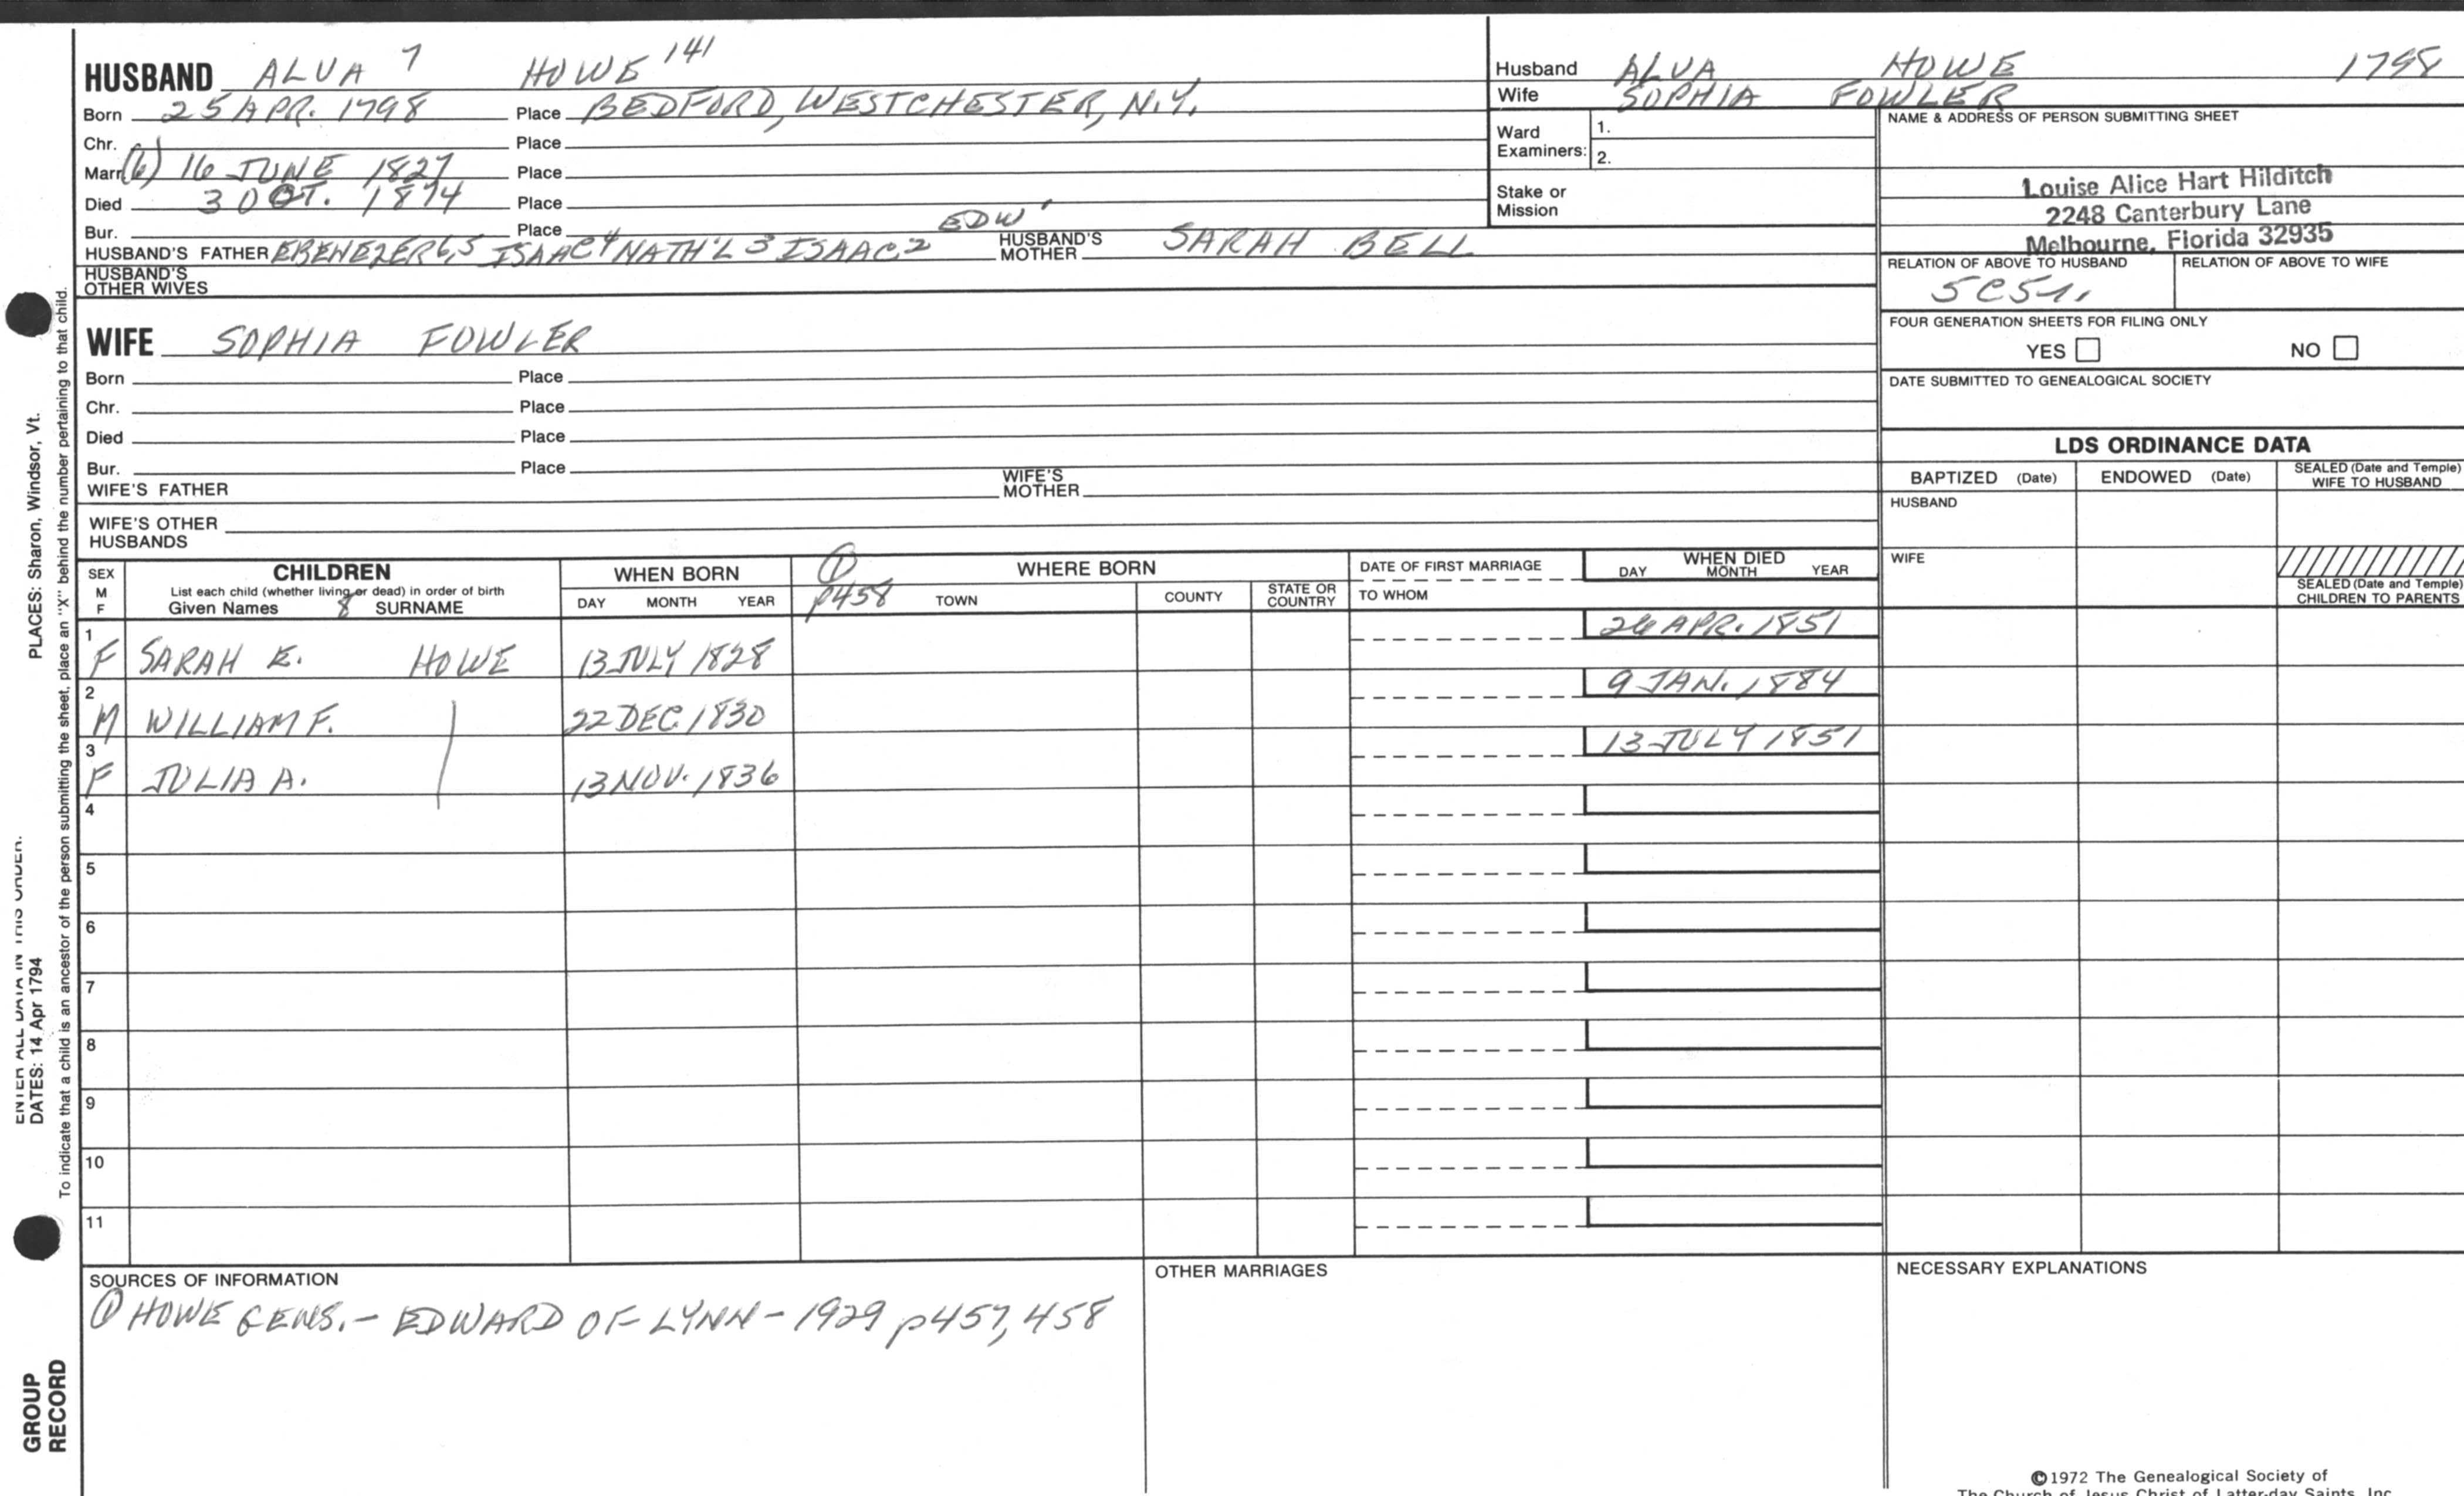 HUSBAND ALVA 7 HOWE 141
Born 25 APR. 1798 Place BEDFORD, WESTCHESTER, N.Y.
Chr. Place
Marr. (6) 16 JUNE 1827 Place
Died 3 OCT. 1874 Place
Bur. Place
HUSBAND'S FATHER EBENEZER 6,5 ISAAC 4 NATH'L 3 ISAAC 2 EDW ' HUSBAND'S MOTHER SARAH BELL
HUSBAND'S OTHER WIVES
WIFE SOPHIA FOWLER
Born Place
Chr. Place
Died Place
Bur. Place
WIFE'S FATHER WIFE'S MOTHER
WIFE'S OTHER HUSBANDS
Husband ALVA HOWE 1798
Wife SOPHIA FOWLER
Ward Examiners: 1.
2.
Stake or Mission
NAME & ADDRESS OF PERSON SUBMITTING SHEET
Louise Alice Hart Hilditch
2248 Canterbury Lane
Melbourne, Florida 32935
RELATION OF ABOVE TO HUSBAND RELATION OF ABOVE TO WIFE
FOUR GENERATION SHEETS FOR FILING ONLY
YES NO
DATE SUBMITTED TO GENEALOGICAL SOCIETY
LDS ORDINANCE DATA
BAPTIZED (Date) ENDOWED (Date) SEALED (Date and Temple) WIFE TO HUSBAND
HUSBAND
WIFE
SEALED (Date and Temple) CHILDREN TO PARENTS
SEX M F CHILDREN WHEN BORN 1 WHERE BORN DATE OF FIRST MARRIAGE WHEN DIED
List each child (whether living or dead) in order of birth
Given Names 8 SURNAME DAY MONTH YEAR p458 TOWN COUNTY STATE OR COUNTRY TO WHOM DAY MONTH YEAR
1 F SARAH E. HOWE 13 JULY 1828 26 APR. 1851
2 M WILLIAM F. 22 DEC. 1830 9 JAN. 1884
3 F JULIA A. 13 NOV. 1836 13 JULY 1851
4
5
6
7
8
9
10
11
SOURCES OF INFORMATION
1 HOWE GENS. - EDWARD OF LYNN - 1929 p457, 458
OTHER MARRIAGES
NECESSARY EXPLANATIONS
©1972 The Genealogical Society of
The Church of Jesus Christ of Latter-day Saints, Inc.
PLACES: Sharon, Windsor, Vt.
To indicate that a child is an ancestor of the person submitting the sheet, place an "X" behind the number pertaining to that child.
ENTER ALL DATA IN THIS ORDER:
DATES: 14 Apr 1794
GROUP
RECORD